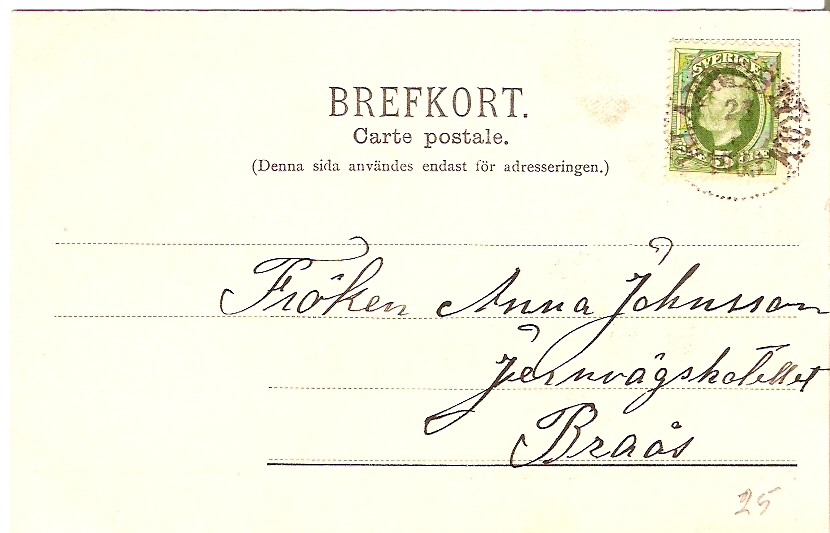 BREFKORT.
Carte postale.
(Denna sida användes endast för adresseringen.)
SVERIGE
5
Fröken Anna Johnsson
Jernvägshotellet
Braås
25